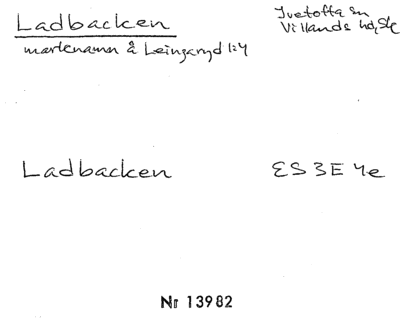 Ladbacken
Ivetofta sn
Villands hd, Sk
markenamn å Leingaryd 1:4
Ladbacken
ES 3E 4e
Nr 13982